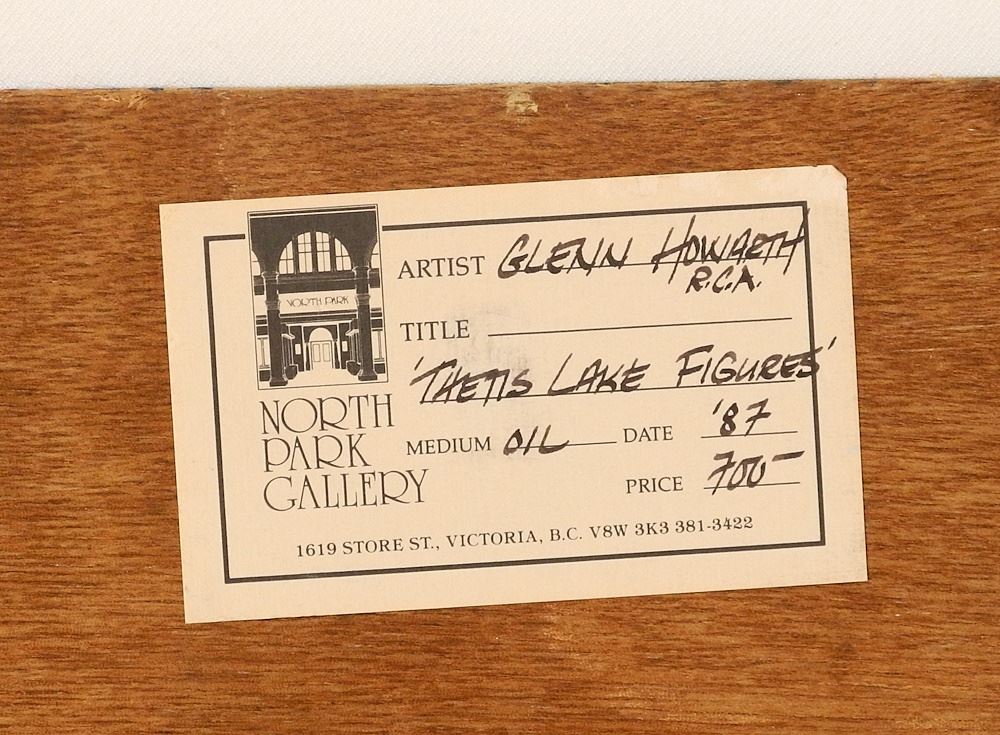 ARTIST GLENN HOWARTH
R.C.A.
NORTH PARK
TITLE
'THETIS LAKE FIGURES'
NORTH
PARK
GALLERY
MEDIUM OIL DATE '87
PRICE 700—
1619 STORE ST., VICTORIA, B.C. V8W 3K3 381-3422